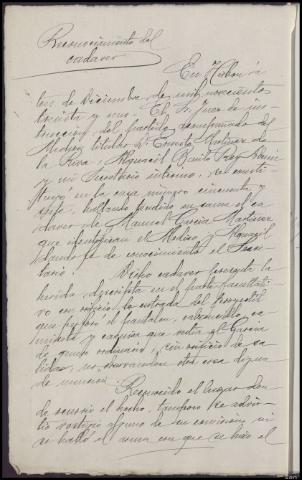 Reconocimiento del
cadaver
En
tres de Diciembre de mil novecientos
treinta y uno. El Sr. Juez de ins-
trucción del partido, acompañado del
Medico titular Dn. Ernesto Martinez de
la Riva, Alguacil Benito
y mi Secretario interino, se consti-
tuyó en la casa número cincuenta y
ocho, hallando tendido en cama el ca-
daver de Manuel Garcia Martinez
que identifican el Medico y Alguacil
dando fe de conocimiento el Secre-
tario.
Dicho cadaver presenta la
herida descrita en el parte facultati-
vo con orificio de entrada del proyectil
que perforó el pantalon,
camiseta y camisa que vestia el Garcia
de punto ordinario, sin orificio de sa-
lida, no observandose otra cosa digna
de mencion.
Reconocido el lugar don-
de ocurrió el hecho, tampoco se advir-
tió vestigio alguno de su comision, ni
se halló el arma con que se hizo el